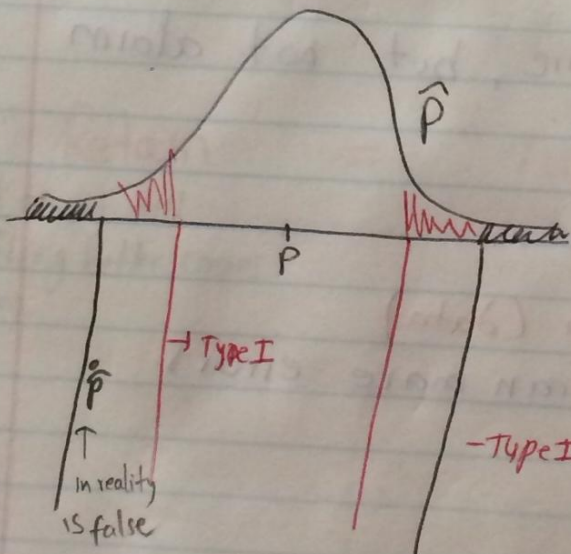 P̂
P
→ Type I
p̂
↑
in reality
is false
- Type I